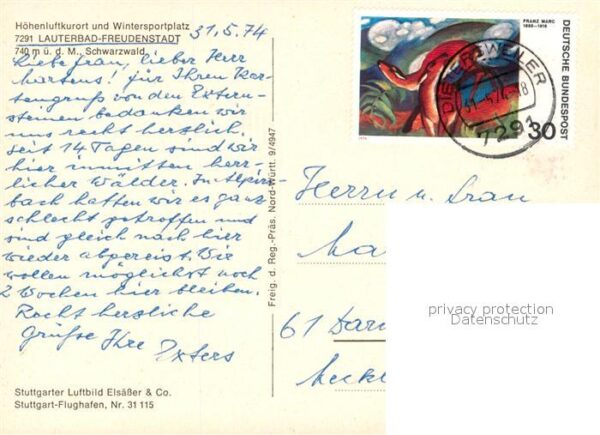 Höhenluftkurort und Wintersportplatz
7291 LAUTERBAD-FREUDENSTADT
740 m ü. d. M., Schwarzwald
31.5.74
Liebe Frau, lieber Herr
Martens! für Ihren Kar-
tengruß von den Extern-
steinen bedanken wir
uns recht herzlich.
Seit 14 Tagen sind wir
hier inmitten herr-
licher Wälder. In Alpirs-
bach hatten wir es ganz
schlecht getroffen und
sind gleich nach hier
wieder abgereist. Wir
wollen möglichst noch
2 Wochen hier bleiben.
Recht herzliche
Grüße Ihre
Exters
Stuttgarter Luftbild Elsäßer & Co.
Stuttgart-Flughafen, Nr. 31 115
Freig. d. Reg.-Präs. Nord-Württ. 9/4947
FRANZ MARC
1880-1916
DEUTSCHE BUNDESPOST
30
1974
7291
Herrn u. Frau
Ma
61 Darm
Meckl
privacy protection
Datenschutz